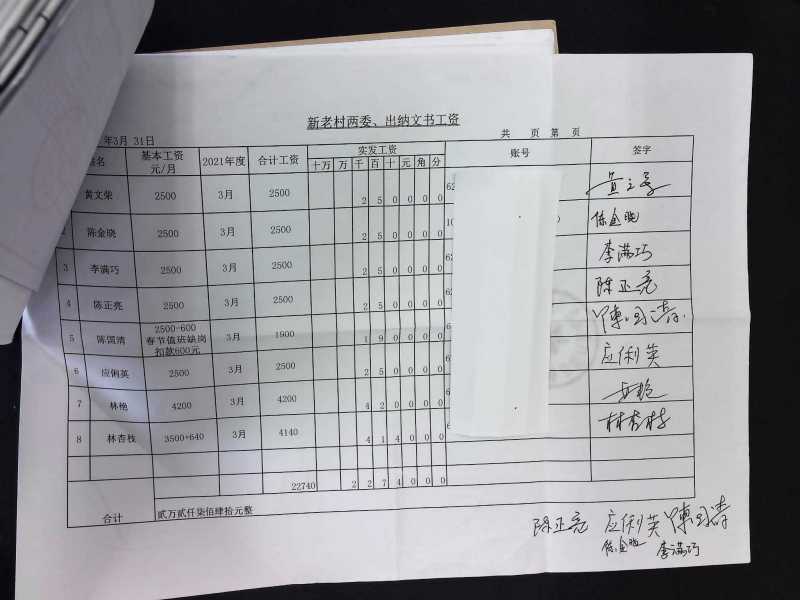 新老村两委、出纳文书工资
年3月 31日 共 页 第 页
姓名 基本工资 元/月 2021年度 合计工资 实发工资 账号 签字
十万 万 千 百 十 元 角 分
黄文荣 2500 3月 2500 2 5 0 0 0 0 62
2 陈金晓 2500 3月 2500 2 5 0 0 0 0 10 陈金晓
3 李满巧 2500 3月 2500 2 5 0 0 0 0 62 李满巧
4 陈正亮 2500 3月 2500 2 5 0 0 0 0 62 陈正亮
5 陈国清 2500-600 春节值班缺岗 扣款600元 3月 1900 1 9 0 0 0 0 6
6 应俐英 2500 3月 2500 2 5 0 0 0 0 6 应俐英
7 林艳 4200 3月 4200 4 2 0 0 0 0 6
8 林杏枝 3500+640 3月 4140 4 1 4 0 0 0 6 林杏枝
22740 2 2 7 4 0 0 0
合计 贰万贰仟柒佰肆拾元整
陈正亮 应俐英
陈金晓 李满巧